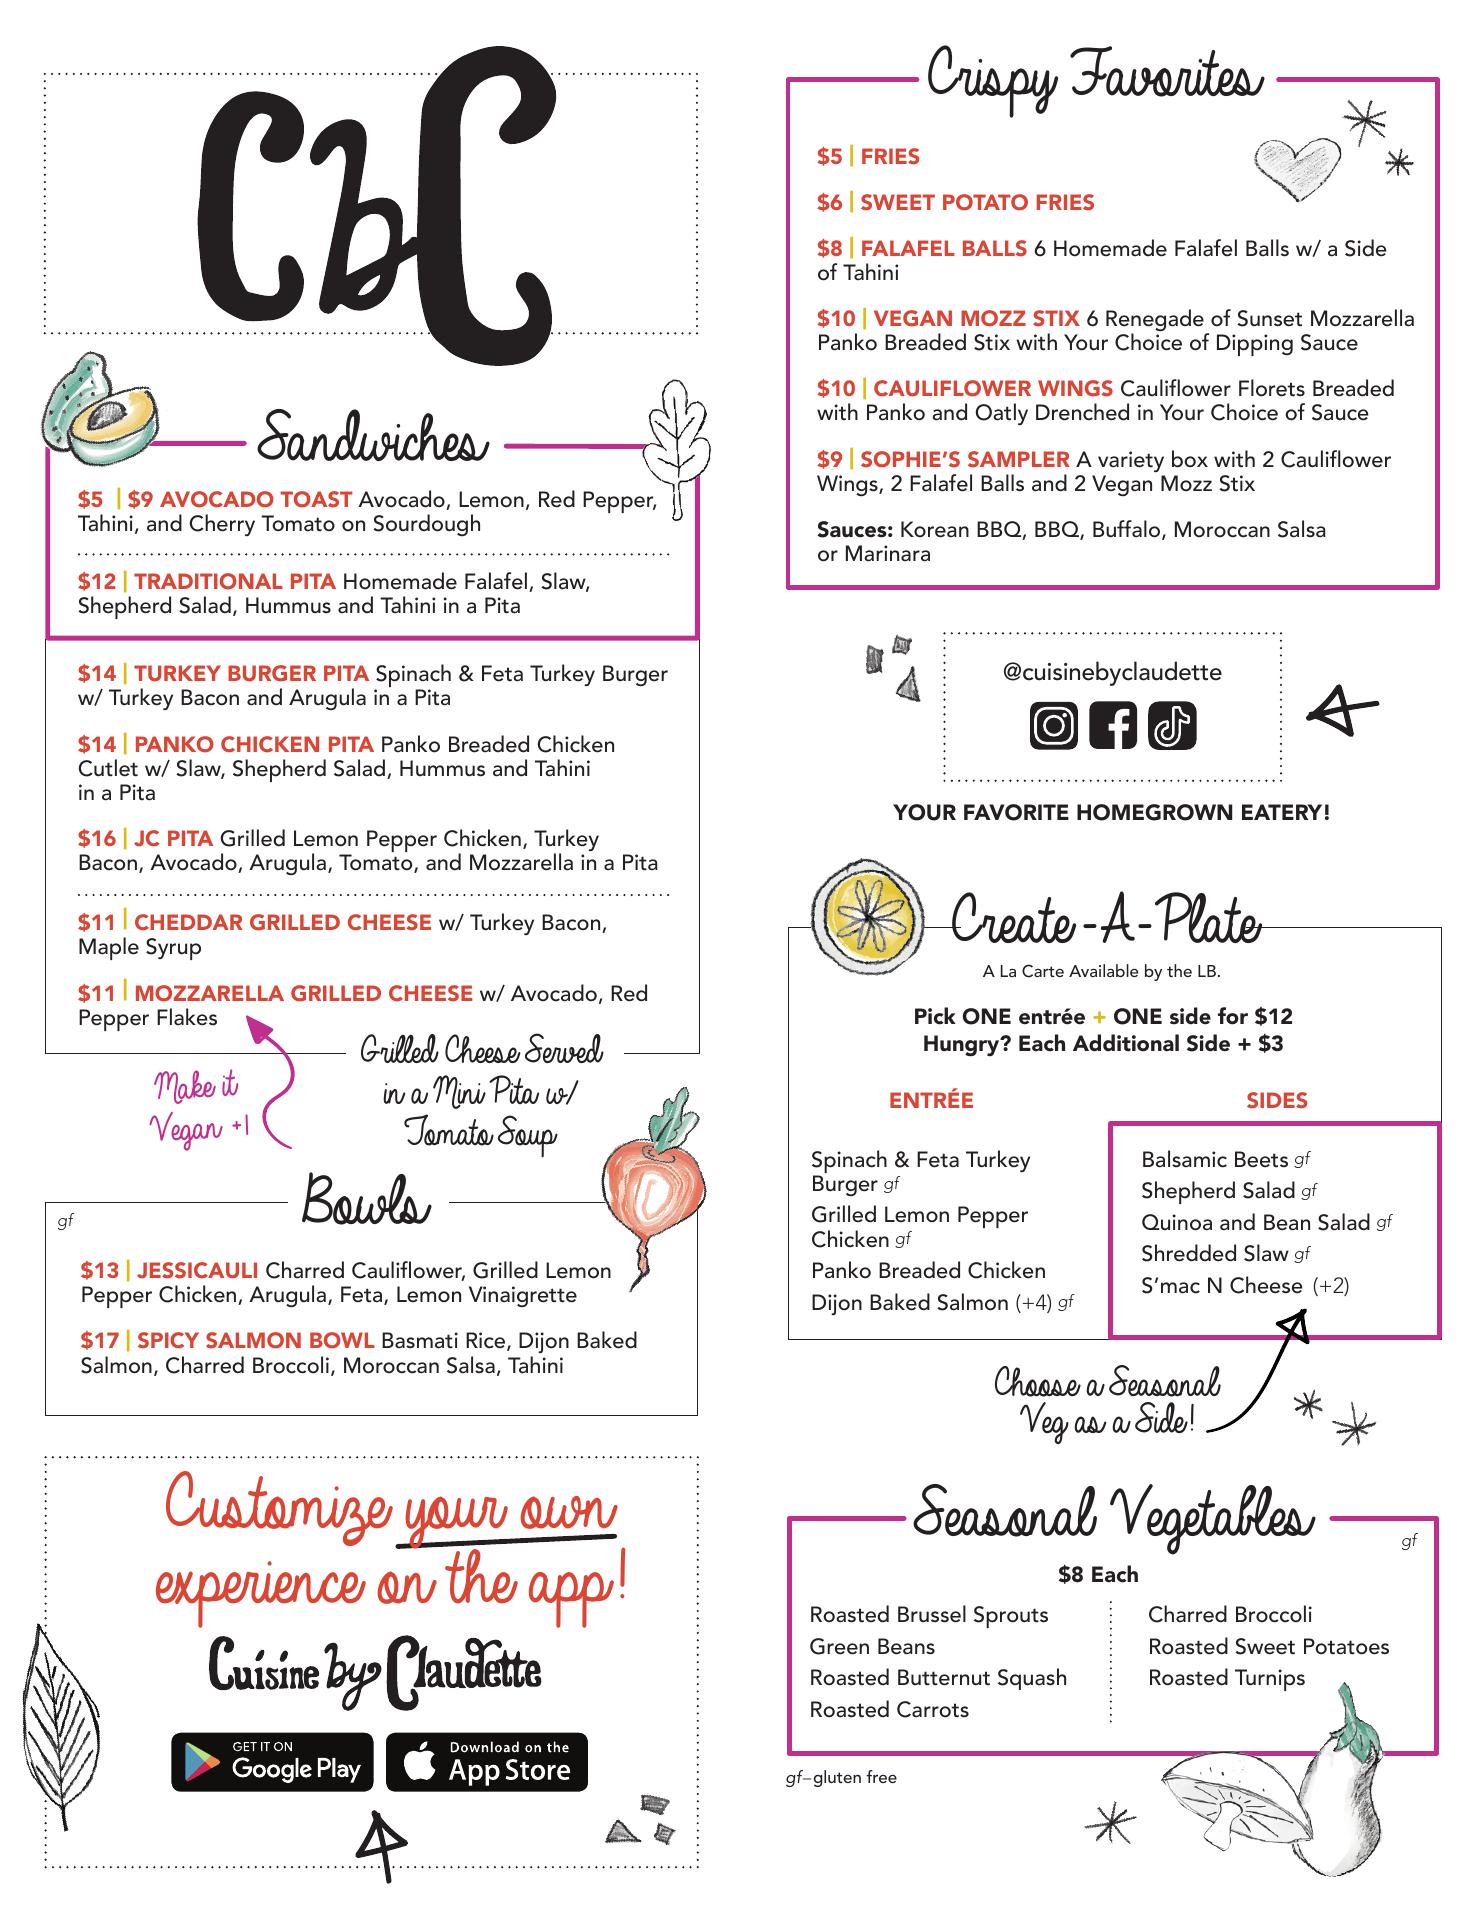 CbC
Sandwiches
$5 | $9 AVOCADO TOAST Avocado, Lemon, Red Pepper,
Tahini, and Cherry Tomato on Sourdough
$12 | TRADITIONAL PITA Homemade Falafel, Slaw,
Shepherd Salad, Hummus and Tahini in a Pita
$14 | TURKEY BURGER PITA Spinach & Feta Turkey Burger
w/ Turkey Bacon and Arugula in a Pita
$14 | PANKO CHICKEN PITA Panko Breaded Chicken
Cutlet w/ Slaw, Shepherd Salad, Hummus and Tahini
in a Pita
$16 | JC PITA Grilled Lemon Pepper Chicken, Turkey
Bacon, Avocado, Arugula, Tomato, and Mozzarella in a Pita
$11 | CHEDDAR GRILLED CHEESE w/ Turkey Bacon,
Maple Syrup
$11 | MOZZARELLA GRILLED CHEESE w/ Avocado, Red
Pepper Flakes
Make it
Vegan +1
Grilled Cheese Served
in a Mini Pita w/
Tomato Soup
Bowls
gf
$13 | JESSICAULI Charred Cauliflower, Grilled Lemon
Pepper Chicken, Arugula, Feta, Lemon Vinaigrette
$17 | SPICY SALMON BOWL Basmati Rice, Dijon Baked
Salmon, Charred Broccoli, Moroccan Salsa, Tahini
Customize your own
experience on the app!
Cuisine by Claudette
GET IT ON
Google Play
Download on the
App Store
Crispy Favorites
$5 | FRIES
$6 | SWEET POTATO FRIES
$8 | FALAFEL BALLS 6 Homemade Falafel Balls w/ a Side
of Tahini
$10 | VEGAN MOZZ STIX 6 Renegade of Sunset Mozzarella
Panko Breaded Stix with Your Choice of Dipping Sauce
$10 | CAULIFLOWER WINGS Cauliflower Florets Breaded
with Panko and Oatly Drenched in Your Choice of Sauce
$9 | SOPHIE'S SAMPLER A variety box with 2 Cauliflower
Wings, 2 Falafel Balls and 2 Vegan Mozz Stix
Sauces: Korean BBQ, BBQ, Buffalo, Moroccan Salsa
or Marinara
@cuisinebyclaudette
YOUR FAVORITE HOMEGROWN EATERY!
Create-A-Plate
A La Carte Available by the LB.
Pick ONE entrée + ONE side for $12
Hungry? Each Additional Side + $3
ENTRÉE
Spinach & Feta Turkey
Burger gf
Grilled Lemon Pepper
Chicken gf
Panko Breaded Chicken
Dijon Baked Salmon (+4) gf
SIDES
Balsamic Beets gf
Shepherd Salad gf
Quinoa and Bean Salad gf
Shredded Slaw gf
S'mac N Cheese (+2)
Choose a Seasonal
Veg as a Side!
Seasonal Vegetables
gf
$8 Each
Roasted Brussel Sprouts
Green Beans
Roasted Butternut Squash
Roasted Carrots
Charred Broccoli
Roasted Sweet Potatoes
Roasted Turnips
gf–gluten free